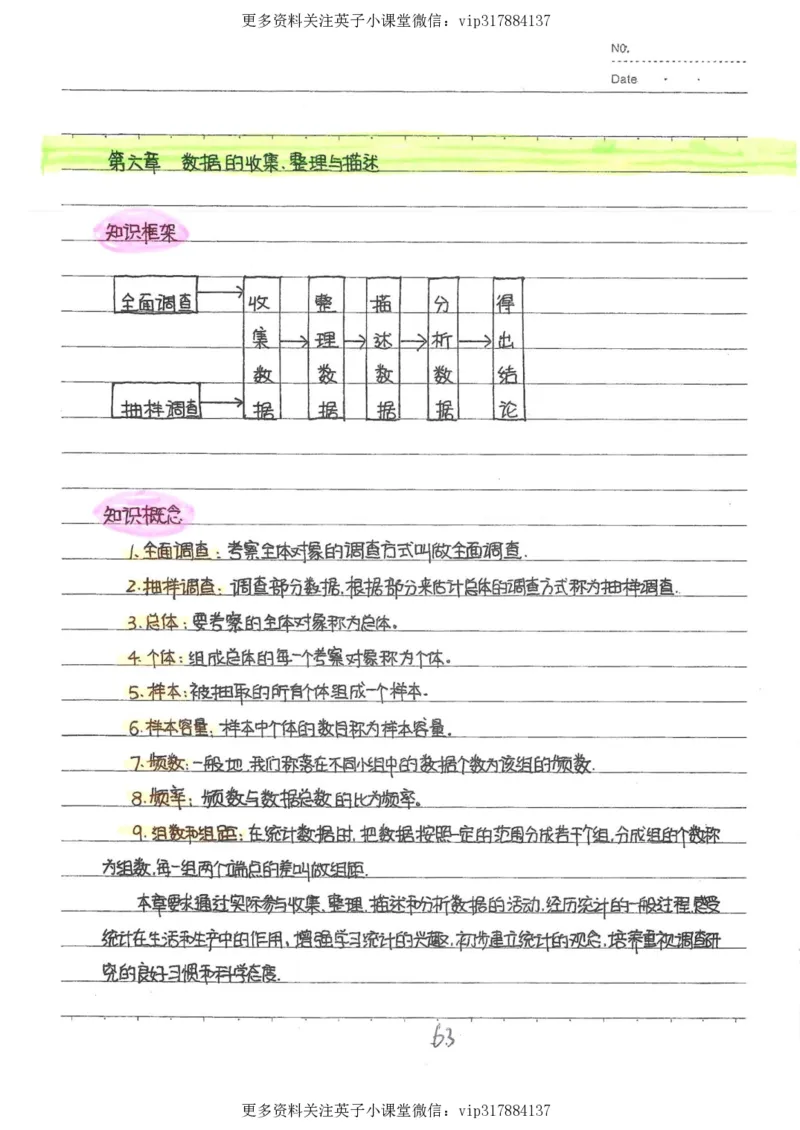 更多资料关注英子小课堂微信：vip317884137
NO.
Date
第六章 数据的收集、整理与描述
知识框架
全面调查
抽样调查
收集数据
整理数据
描述数据
分析数据
得出结论
知识概念
1.全面调查：考察全体对象的调查方式叫做全面调查.
2.抽样调查：调查部分数据,根据部分来估计总体的调查方式称为抽样调查.
3.总体：要考察的全体对象称为总体。
4.个体：组成总体的每一个考察对象称为个体。
5.样本：被抽取的所有个体组成一个样本.
6.样本容量：样本中个体的数目称为样本容量。
7.频数：一般地,我们称落在不同小组中的数据个数为该组的频数.
8.频率：频数与数据总数的比为频率。
9.组数和组距：在统计数据时,把数据按照一定的范围分成若干个组,分成组的个数称
为组数,每一组两个端点的差叫做组距.
本章要求通过实际参与收集、整理、描述和分析数据的活动,经历统计的一般过程,感受
统计在生活和生产中的作用,增强学习统计的兴趣,初步建立统计的观念,培养重视调查研
究的良好习惯和科学态度.
63
更多资料关注英子小课堂微信：vip317884137